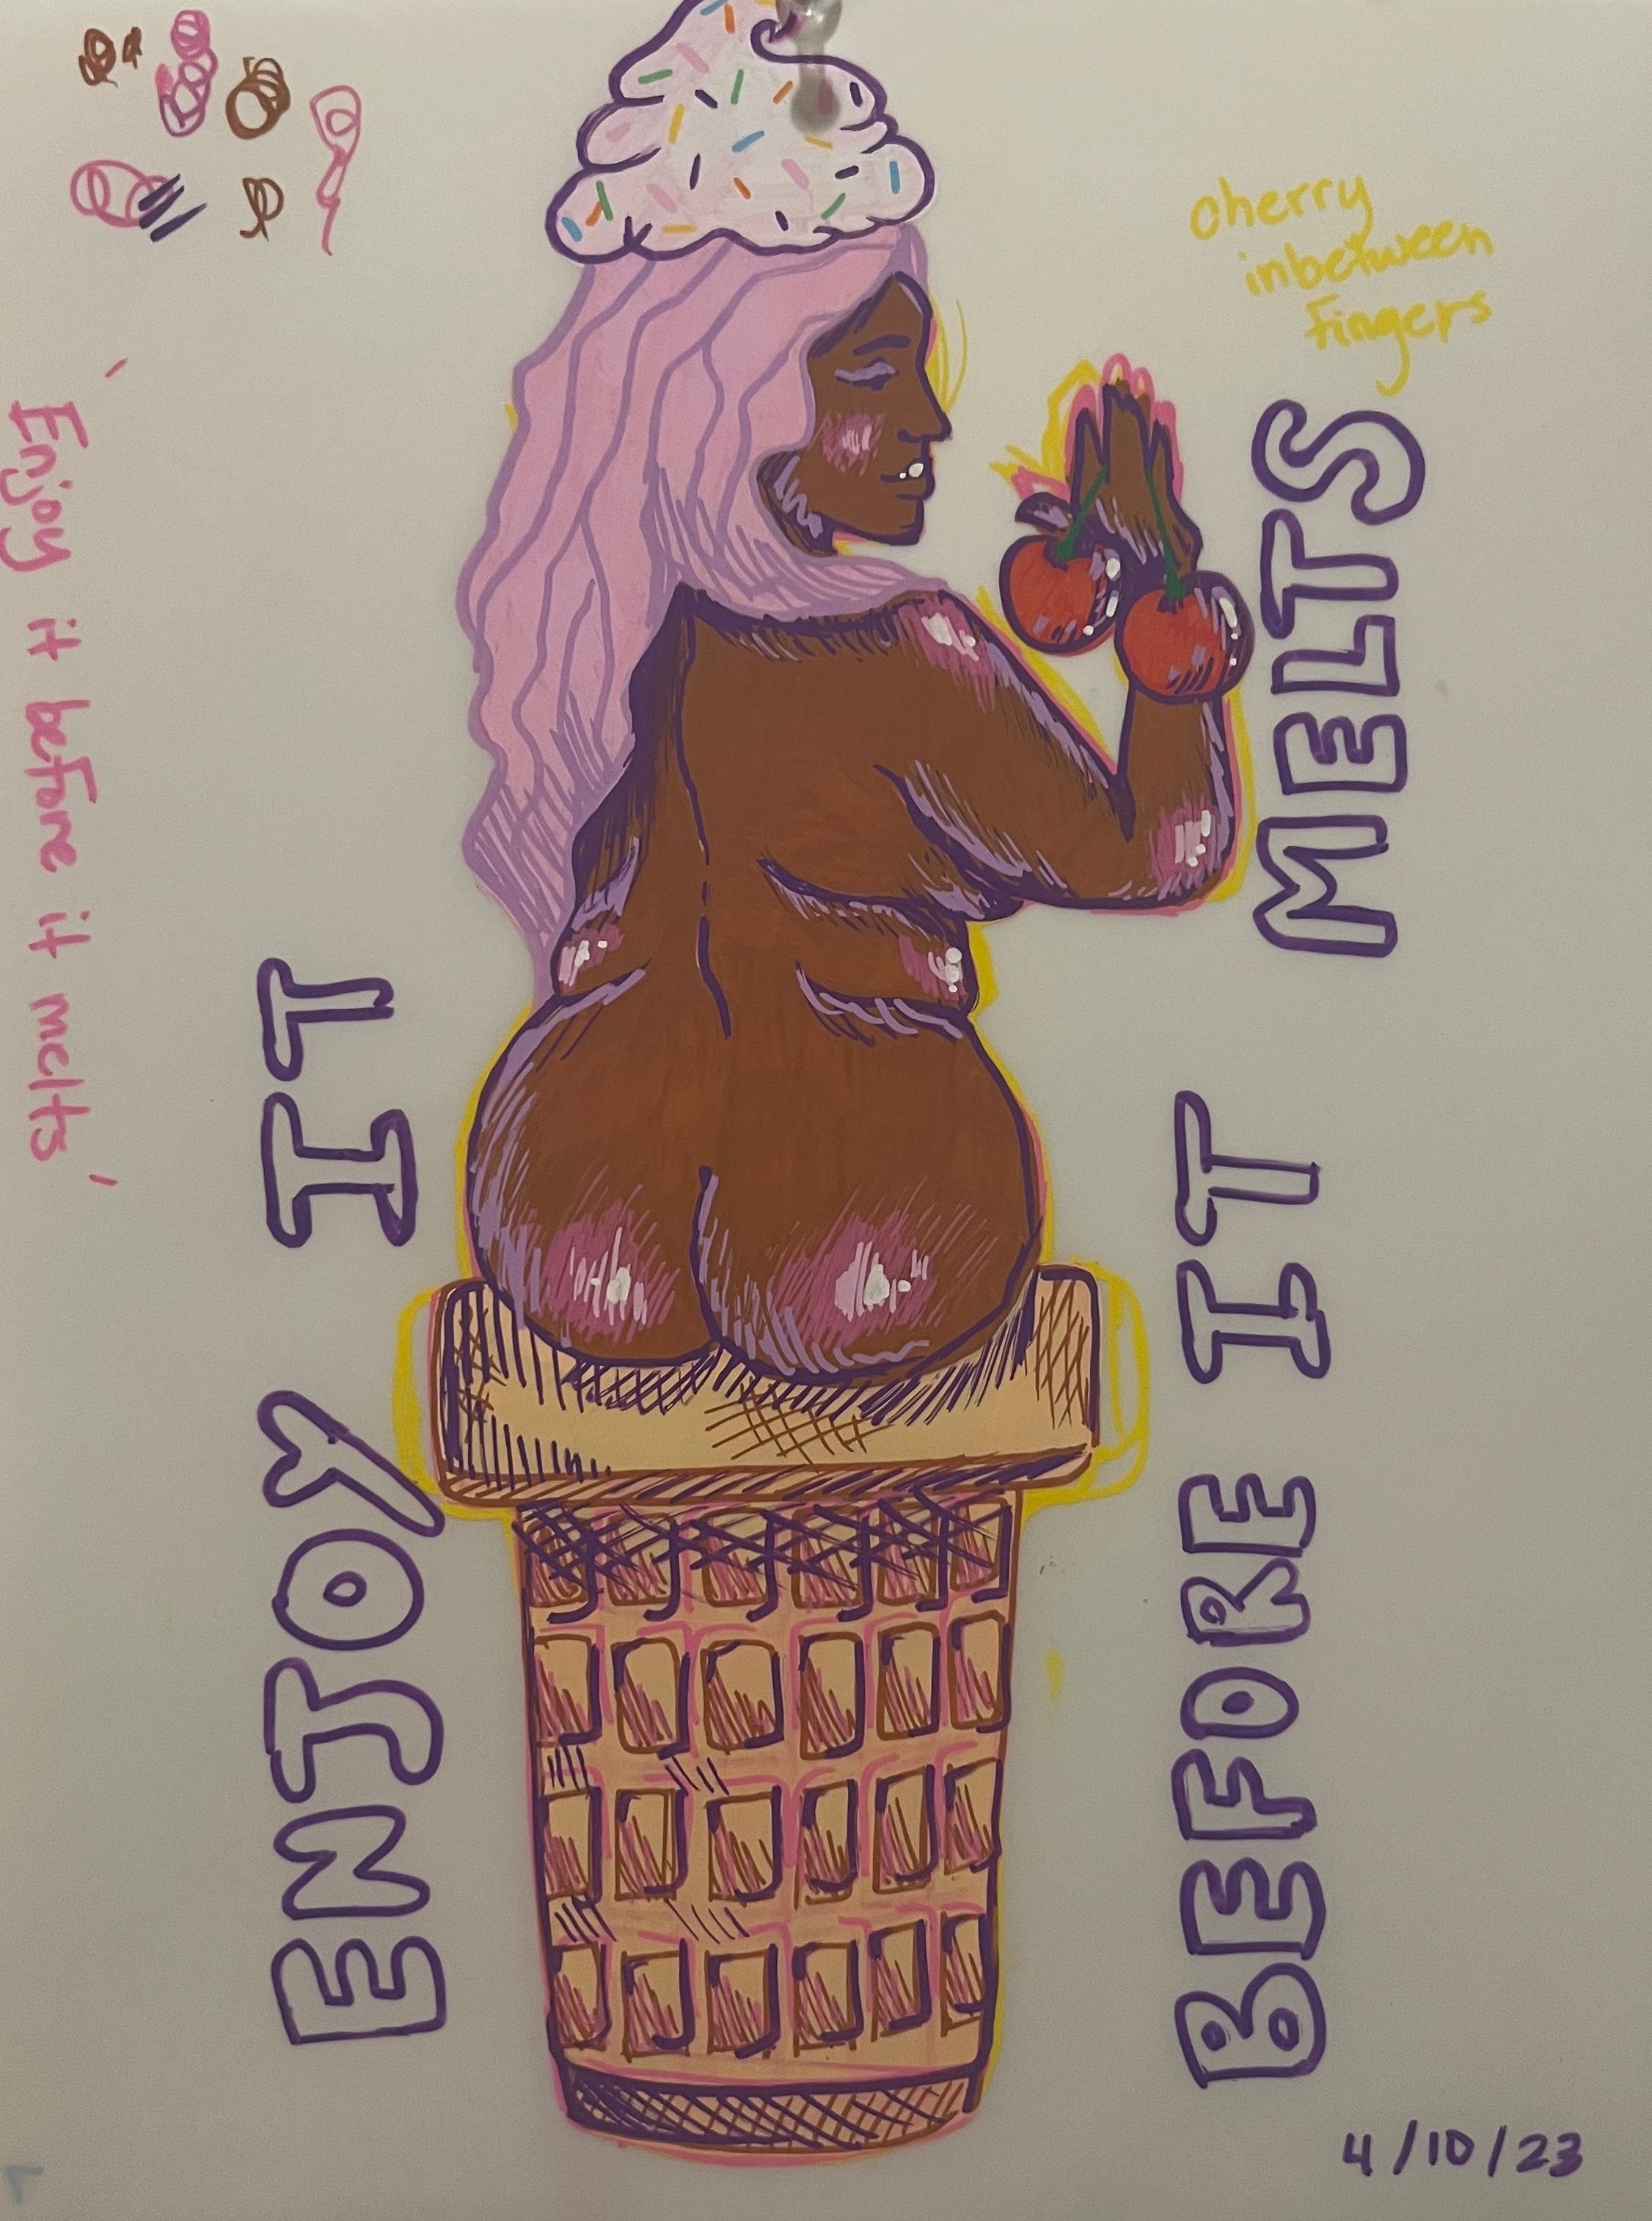 cherry
inbetween
fingers
'Enjoy it before it melts'
ENJOY IT
BEFORE IT MELTS
4/10/23